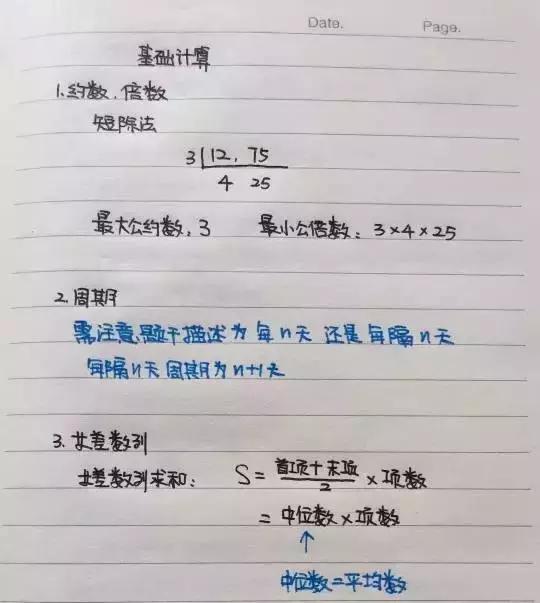 Date.    Page.
基础计算
1.约数、倍数
短除法
3 | 12, 75
4 25
最大公约数:3 最小公倍数:3×4×25
2.周期
需注意题干描述为每n天 还是每隔n天
每隔n天周期为n+1天
3.等差数列
等差数列求和: S = 首项+末项/2 ×项数
= 中位数×项数
↑
中位数=平均数